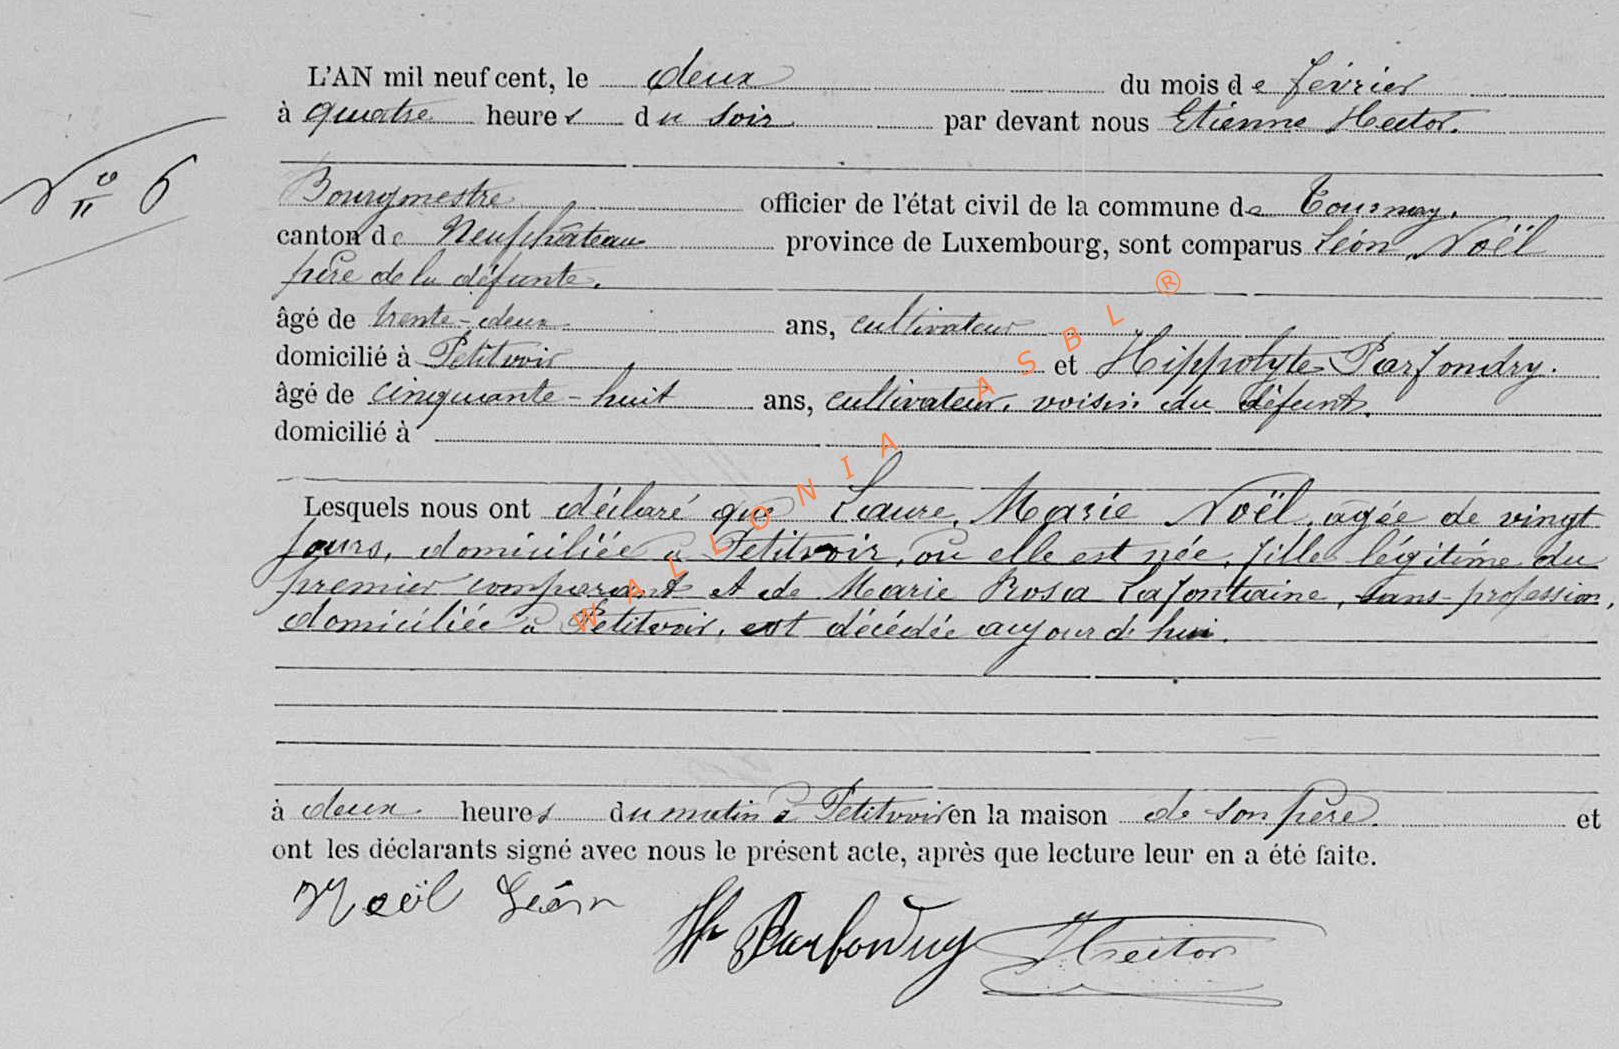 L'AN mil neuf cent, le deux du mois de février
à quatre heures du soir par devant nous Etienne Hector.
N° 6
Bourgmestre officier de l'état civil de la commune de Tournay.
canton de Neufchâteau province de Luxembourg, sont comparus Léon Noël
père de la défunte.
âgé de trente-deux ans, cultivateur
domicilié à Petitvoir et Hippolyte Parfondry.
âgé de cinquante-huit ans, cultivateur, voisin du défunt.
domicilié à
Lesquels nous ont déclaré que Laure, Marie Noël, agée de vingt
jours, domiciliée à Petitvoir, où elle est née, fille légitime du
premier comparant et de Marie Rosa Lafontaine, sans profession,
domiciliée à Petitvoir, est décédée aujourd'hui.
à deux heures du matin à Petitvoir en la maison de son père. et
ont les déclarants signé avec nous le présent acte, après que lecture leur en a été faite.
Noël Léon Hte Parfondry Hector
WALLONIA ASBL ®